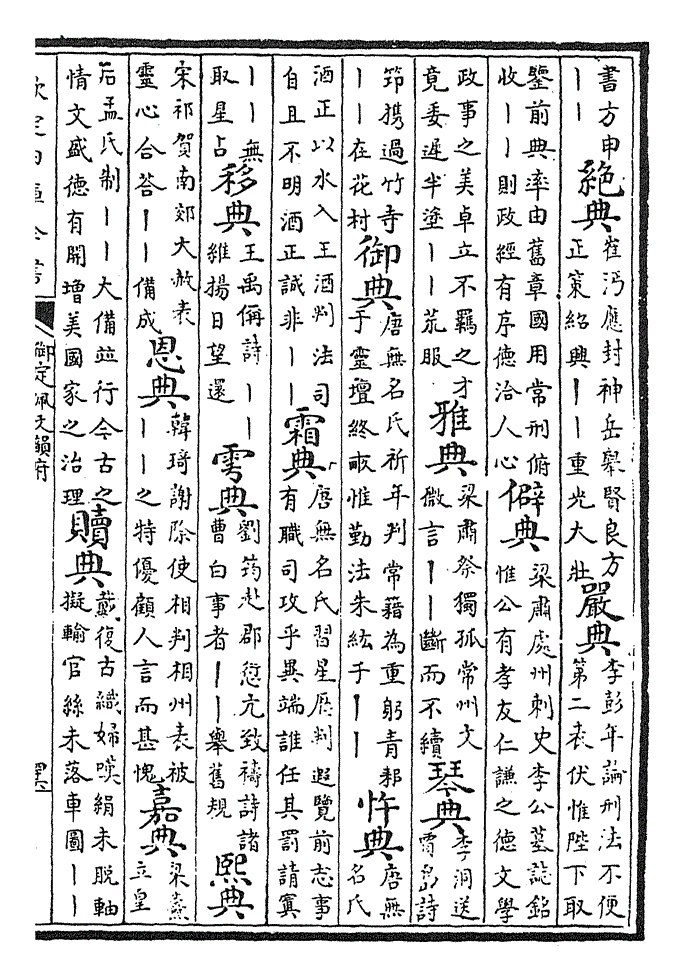 書方申丨丨絶典崔沔應封神岳舉賢良方正策紹興丨丨重光大壯嚴典李彭年論刑法不便第二表伏惟陛下取
鑒前典率由舊章國用常刑俯收丨丨則政經有序德洽人心僻典梁肅處州刺史李公墓誌銘惟公有孝友仁謙之德文學
政事之美卓立不羈之才竟委遲半塗丨丨荒服雅典梁肅祭獨孤常州文微言丨丨斷而不續琴典李洞送賈島詩
筇携過竹寺丨丨在花村御典唐無名氏祈年判常籍為重躬青郲于靈壇終畝惟勤法朱紘于丨丨忤典唐無名氏
酒正以水入王酒判法司自且不明酒正誠非丨丨霜典唐無名氏習星厯判遐覽前志事有職司攻乎異端誰任其罰請寘
丨丨無取星占移典王禹偁詩丨丨維揚日望還雩典劉筠赴郡愆亢致禱詩諸曹白事者丨丨舉舊規熙典
宋祁賀南郊大赦表靈心合荅丨丨備成恩典韓琦謝除使相判相州表被丨丨之特優顧人言而甚愧嘉典梁燾立皇
后孟氏制丨丨大備並行今古之情文盛德有開增美國家之治理贖典戴復古織婦嘆絹未脱軸擬輸官絲未落車圖丨丨
欽定四庫全書
御定佩文韻府